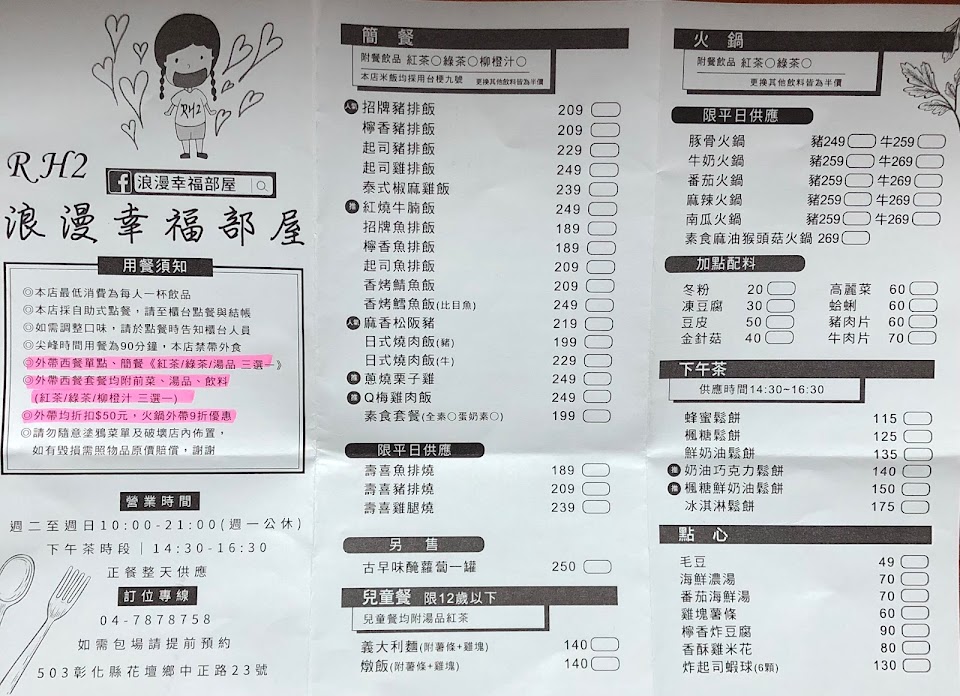 RH2
RH2
f 浪漫幸福部屋
浪漫幸福部屋
用餐須知
◎本店最低消費為每人一杯飲品
◎本店採自助式點餐,請至櫃台點餐與結帳
◎如需調整口味,請於點餐時告知櫃台人員
◎尖峰時間用餐為90分鐘,本店禁帶外食
◎外帶西餐單點、簡餐《紅茶/綠茶/湯品 三選一》
◎外帶西餐套餐均附前菜、湯品、飲料
(紅茶/綠茶/柳橙汁 三選一)
◎外帶均折扣$50元,火鍋外帶9折優惠
◎請勿隨意塗鴉菜單及破壞店內佈置,
如有毀損需照物品原價賠償,謝謝
營業時間
週二至週日10:00-21:00(週一公休)
下午茶時段|14:30-16:30
正餐整天供應
訂位專線
04-7878758
如需包場請提前預約
503彰化縣花壇鄉中正路23號
簡餐
附餐飲品 紅茶○綠茶○柳橙汁○
本店米飯均採用台梗九號 更換其他飲料皆為半價
人氣 招牌豬排飯 209
檸香豬排飯 209
起司豬排飯 229
起司雞排飯 249
泰式椒麻雞飯 239
推 紅燒牛腩飯 249
招牌魚排飯 189
檸香魚排飯 189
起司魚排飯 209
香烤鯖魚飯 209
香烤鱈魚飯(比目魚) 249
人氣 麻香松阪豬 219
日式燒肉飯(豬) 199
日式燒肉飯(牛) 229
推 蔥燒栗子雞 249
推 Q梅雞肉飯 249
素食套餐(全素○蛋奶素○) 199
限平日供應
壽喜魚排燒 189
壽喜豬排燒 209
壽喜雞腿燒 239
另售
古早味醃蘿蔔一罐 250
兒童餐 限12歲以下
兒童餐均附湯品紅茶
義大利麵(附薯條+雞塊) 140
燉飯(附薯條+雞塊) 140
火鍋
附餐飲品 紅茶○綠茶○
更換其他飲料皆為半價
限平日供應
豚骨火鍋 豬249 牛259
牛奶火鍋 豬259 牛269
番茄火鍋 豬259 牛269
麻辣火鍋 豬259 牛269
南瓜火鍋 豬259 牛269
素食麻油猴頭菇火鍋 269
加點配料
冬粉 20 高麗菜 60
凍豆腐 30 蛤蜊 60
豆皮 50 豬肉片 60
金針菇 40 牛肉片 70
下午茶
供應時間14:30~16:30
蜂蜜鬆餅 115
楓糖鬆餅 125
鮮奶油鬆餅 135
推 奶油巧克力鬆餅 140
推 楓糖鮮奶油鬆餅 150
冰淇淋鬆餅 175
點心
毛豆 49
海鮮濃湯 70
番茄海鮮湯 70
雞塊薯條 60
檸香炸豆腐 90
香酥雞米花 80
炸起司蝦球(6顆) 130